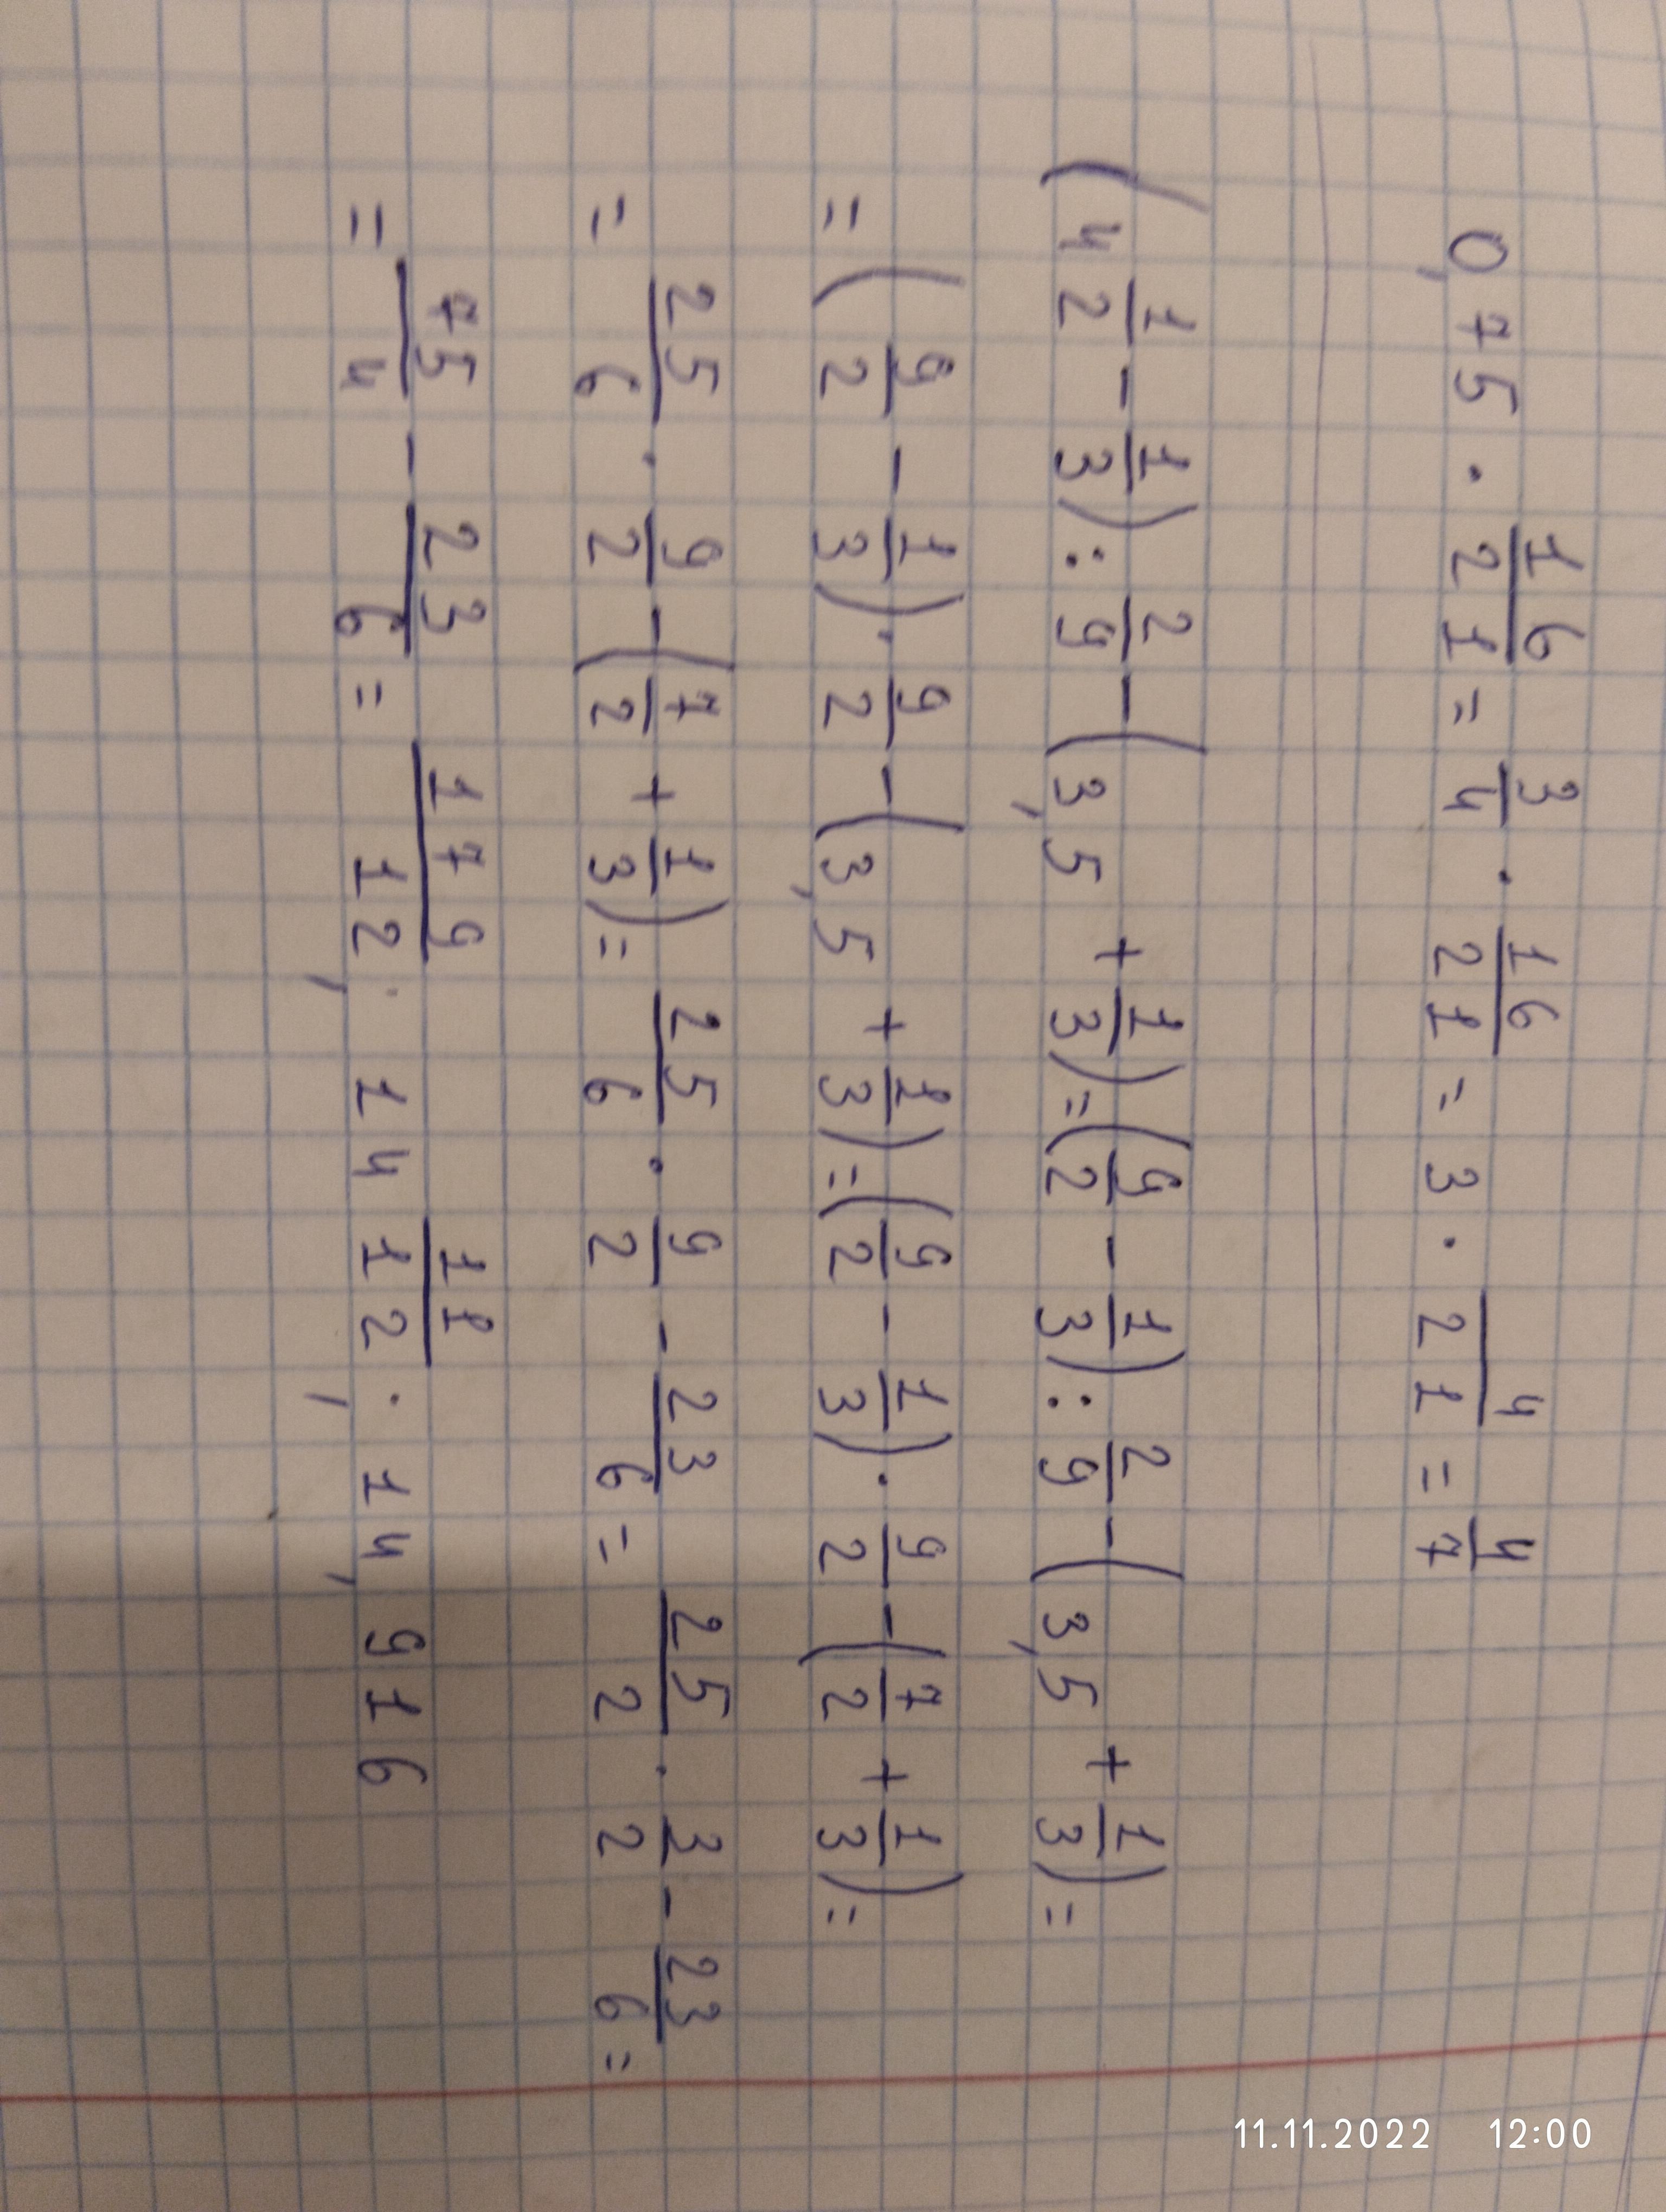 0,75 · 16/21 = 3/4 · 16/21 = 3 · 4/21 = 4/7
(4 1/2 - 1/3) : 2/9 - (3,5 + 1/3) = (9/2 - 1/3) : 2/9 - (3,5 + 1/3) =
= (9/2 - 1/3) · 9/2 - (3,5 + 1/3) = (9/2 - 1/3) · 9/2 - (7/2 + 1/3) =
= 25/6 · 9/2 - (7/2 + 1/3) = 25/6 · 9/2 - 23/6 = 25/2 · 3/2 - 23/6 =
= 75/4 - 23/6 = 179/12; 14 11/12; 14,916
11.11.2022 12:00